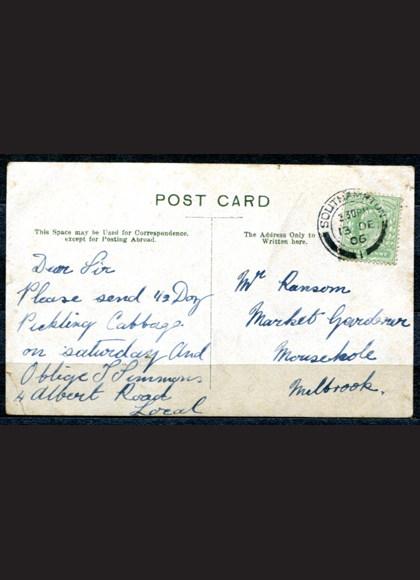 POST CARD
This Space may be Used for Correspondence.
except for Posting Abroad.
The Address Only to
Written here.
SOUTHAMPTON
3.30PM
13 DE
06
1
Dear Sir
Please send 1/3 Doz
Pickling Cabbage
on saturday And
Oblige J Simmons
4 Albert Road
Local
Mr Ransom
Market Gardener
Mousehole
Milbrook.